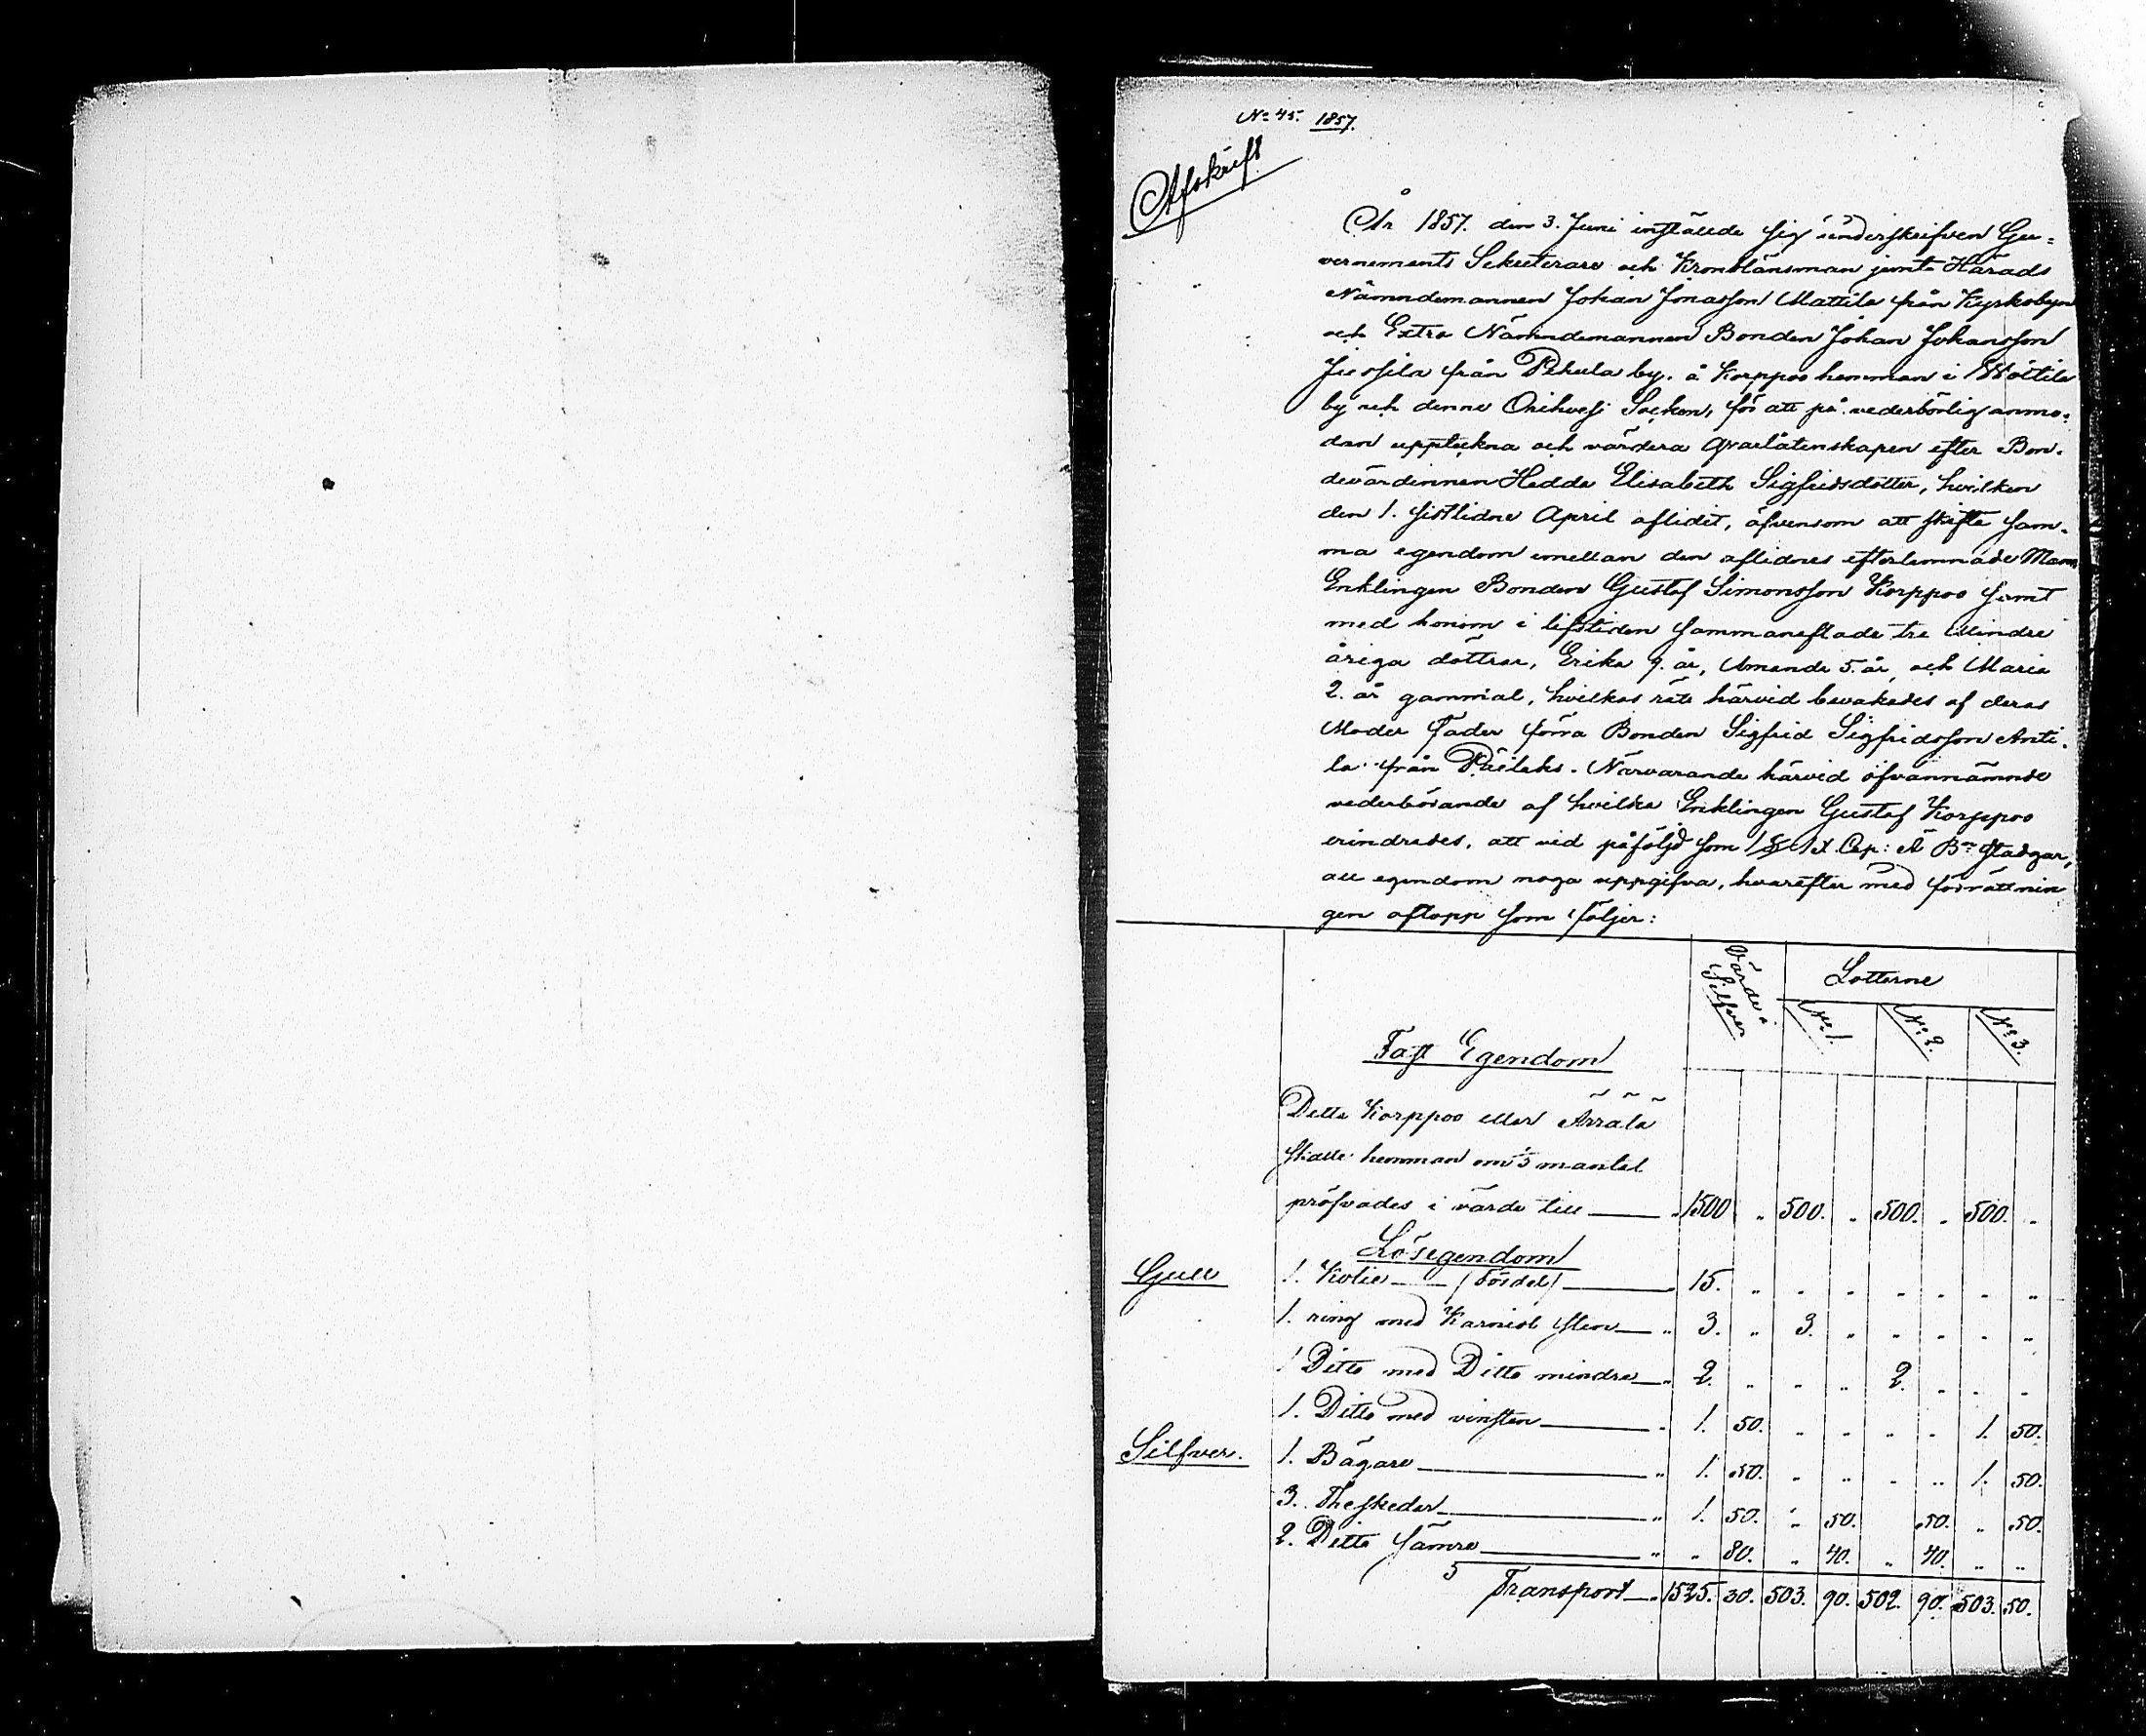 No 45. 1857.
Afskrift
År 1857. den 3. Juni instälde sig underskrifven Gu=
vernements Sekreterare och Kronolänsman jemte Härads
Nämndemannen Johan Jonasson Mattila från Kyrkobyn
och Extra Nämndemannen Bonden Johan Johansson
från Pehula by. å Korppoo hemman i
by och denne Orihvesi Socken, för att på vederbörlig anmo=
dan uppteckna och värdera qvarlåtenskapen efter Bon=
devärdinnan Hedda Elisabeth Sigfridsdotter, hvilken
den 1. sistlidne April aflidit, äfvensom att skifta sam=
ma egendom emellan den aflidnes efterlemnade Man
Enklingen Bonden Gustaf Simonsson Korppoo samt
med honom i lifstiden sammanaflade tre Mindre
åriga döttrar, Erika 9. år, Amanda 5. år, och Maria
2. år gammal, hvilkas rätt härvid bevakades af deras
Moder Fader förra Bonden Sigfrid Sigfridsson Anti=
la från Päilahs. Närvarande härvid ofvannämnde
vederbörande af hvilka Enklingen Gustaf Korppoo
erindrades, att vid påföljd som 1 § IX Cap: Ä Bn stadgar,
all egendom noga uppgifva, hvarefter med förrättnin
gen aflopp som följer:
Värde i Silfver
Lotterne
No 1. No 2. No 3.
Fast Egendom
Detta Korppoo eller Ärrälä
skatte hemman om mantal
pröfvades i värde till " 1500 " 500. " 500. " 500. "
Lösegendom
Gull 1. Kolie (Fördel) " 15. " " " " " " "
1. ring med Karniol sten " 3. " 3. " " " " "
1 Ditto med Ditto mindre " 2. " " " 2. " " "
1. Ditto med vinsten " 1. 50. " " " " 1. 50.
Silfver. 1. Bägare " 1. 50. " " " " 1. 50.
3. Theskedar " 1. 50. " 50. 50. " 50.
2. Ditto sämre " " 80. " 40. " 40. " "
Transport " 1525. 30. 503. 90. 502. 90. 503. 50.